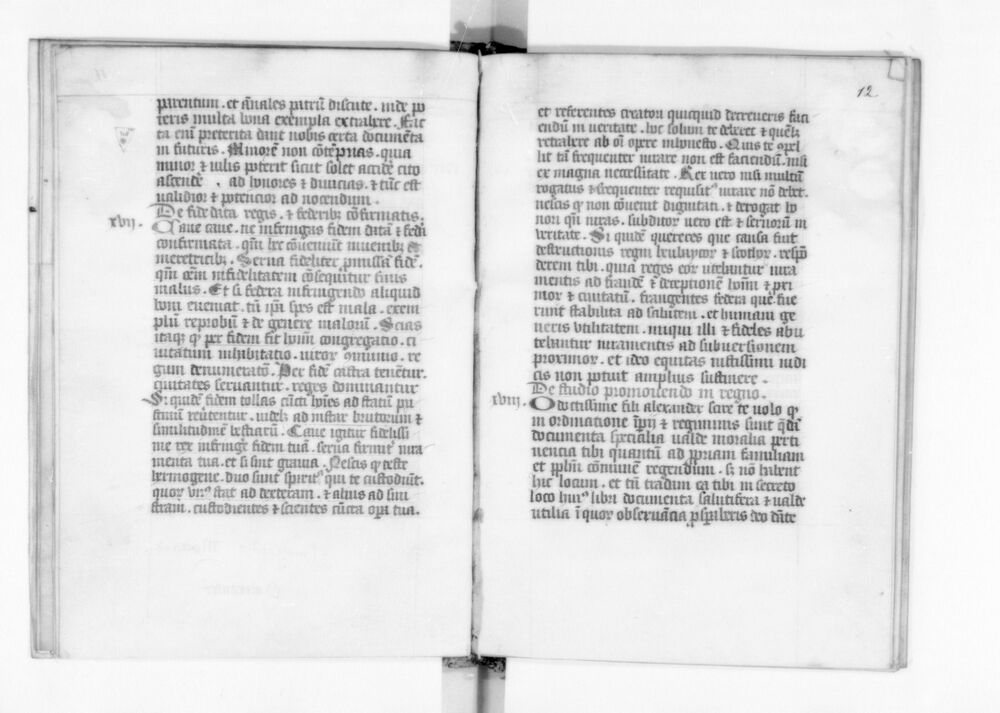 parentum . et ānales patrū discute . inde po
teris multa bona exempla extrahere . Fac
ta enī preterita dant nobis certa documēta
in futuris . Minorē non cōtēpnas . quia
minor ⁊ vilis poterit sicut solet accidē cito
ascendē . ad honores ⁊ divicias . ⁊ tūc est
validior ⁊ potencior ad nocendum .
De fide data regis . ⁊ federibꝫ cōfirmatis .
xvij .
Cave cave . ne infringas fidem datā ⁊ fedā
confirmata . qm̄ hec cōveniūt iuvenibꝫ et
meretricibꝫ . Serva fideliter pmissā fidē .
qm̄ oēm infidelitatem cōsequitur finis
malus . Et si federa infringendo aliquid
boni eveniat . tn̄ ip̄i sp̄es est mala . exem
plū reprobū ⁊ de genere malorū . Scias
itaqꝫ qꝫ per fidem fit hoīm congregatio . ci
vitatum inhibitatio . viror ꝯmunio . re
gum denumeratō . Per fidē castra tenētur .
civitates servantur . reges dominantur
Si quidē fidem tollas cūcti hoīes ad statū pri
stinū revtentur . videlꝫ ad instar brutorum ⁊
similitudinē bestiarū . Cave igitur fidelissi
me rex infringē fidem tuā . serva firmitꝰ iura
menta tua . et si sint gravia . Nescis qꝫ teste
hermogene . duo sunt spiritꝰ qui te custodiūt .
quor unꝰ stat ad dexteram . ⁊ alius ad sini
stram . custodientes ⁊ scientes cūcta opa tua .
12
et referentes creatori quicquid decreveris faci
endū in veritate . hoc solum te deberet ⁊ quēlꝫ
retrahere ab oī opere inhonesto . Quis te opel
lit tā frequenter iurare non est faciendū . nisi
ex magna necessitate . Rex vero nisi multū
rogatus ⁊ frequenter requisitꝰ iurare nō debet .
nescis qꝫ non convenit dignitati . ⁊ derogat ho
nori cū iuras . subditor vero est ⁊ servorum in
veritate . Si quidē quereres que causa fuit
destructionis regni hrubuycor ⁊ scothor . respō
derem tibi . quia reges eor utebantur iura
mentis ad fraudē ⁊ deceptionē hoīm ⁊ pri
mor ⁊ civitatū . frangentes federa que fue
runt stabilita ad salutem . et humani ge
neris utilitatem . iniqui illi ⁊ fideles abu
tebantur iuramentis ad subversionem
proximor . et ideo equitas iustissimi iudi
cis non potuit amplius sustinere .
De studio promovendo in regno .
xviij .
O doctissime fili alexander scire te volo qꝫ
in ordinatione ip̄ij ⁊ regiminis sunt qdā
documenta specialia valde moralia perti
nencia tibi quantū ad ppriam familiam
et pplm̄ cōmunem regendum . sꝫ nō habent
hic locum . et tn̄ tradam ea tibi in secreto
loco huiꝰ libri documenta salutifera ⁊ valde
utilia ī quor observācia pspaberis deo dāte